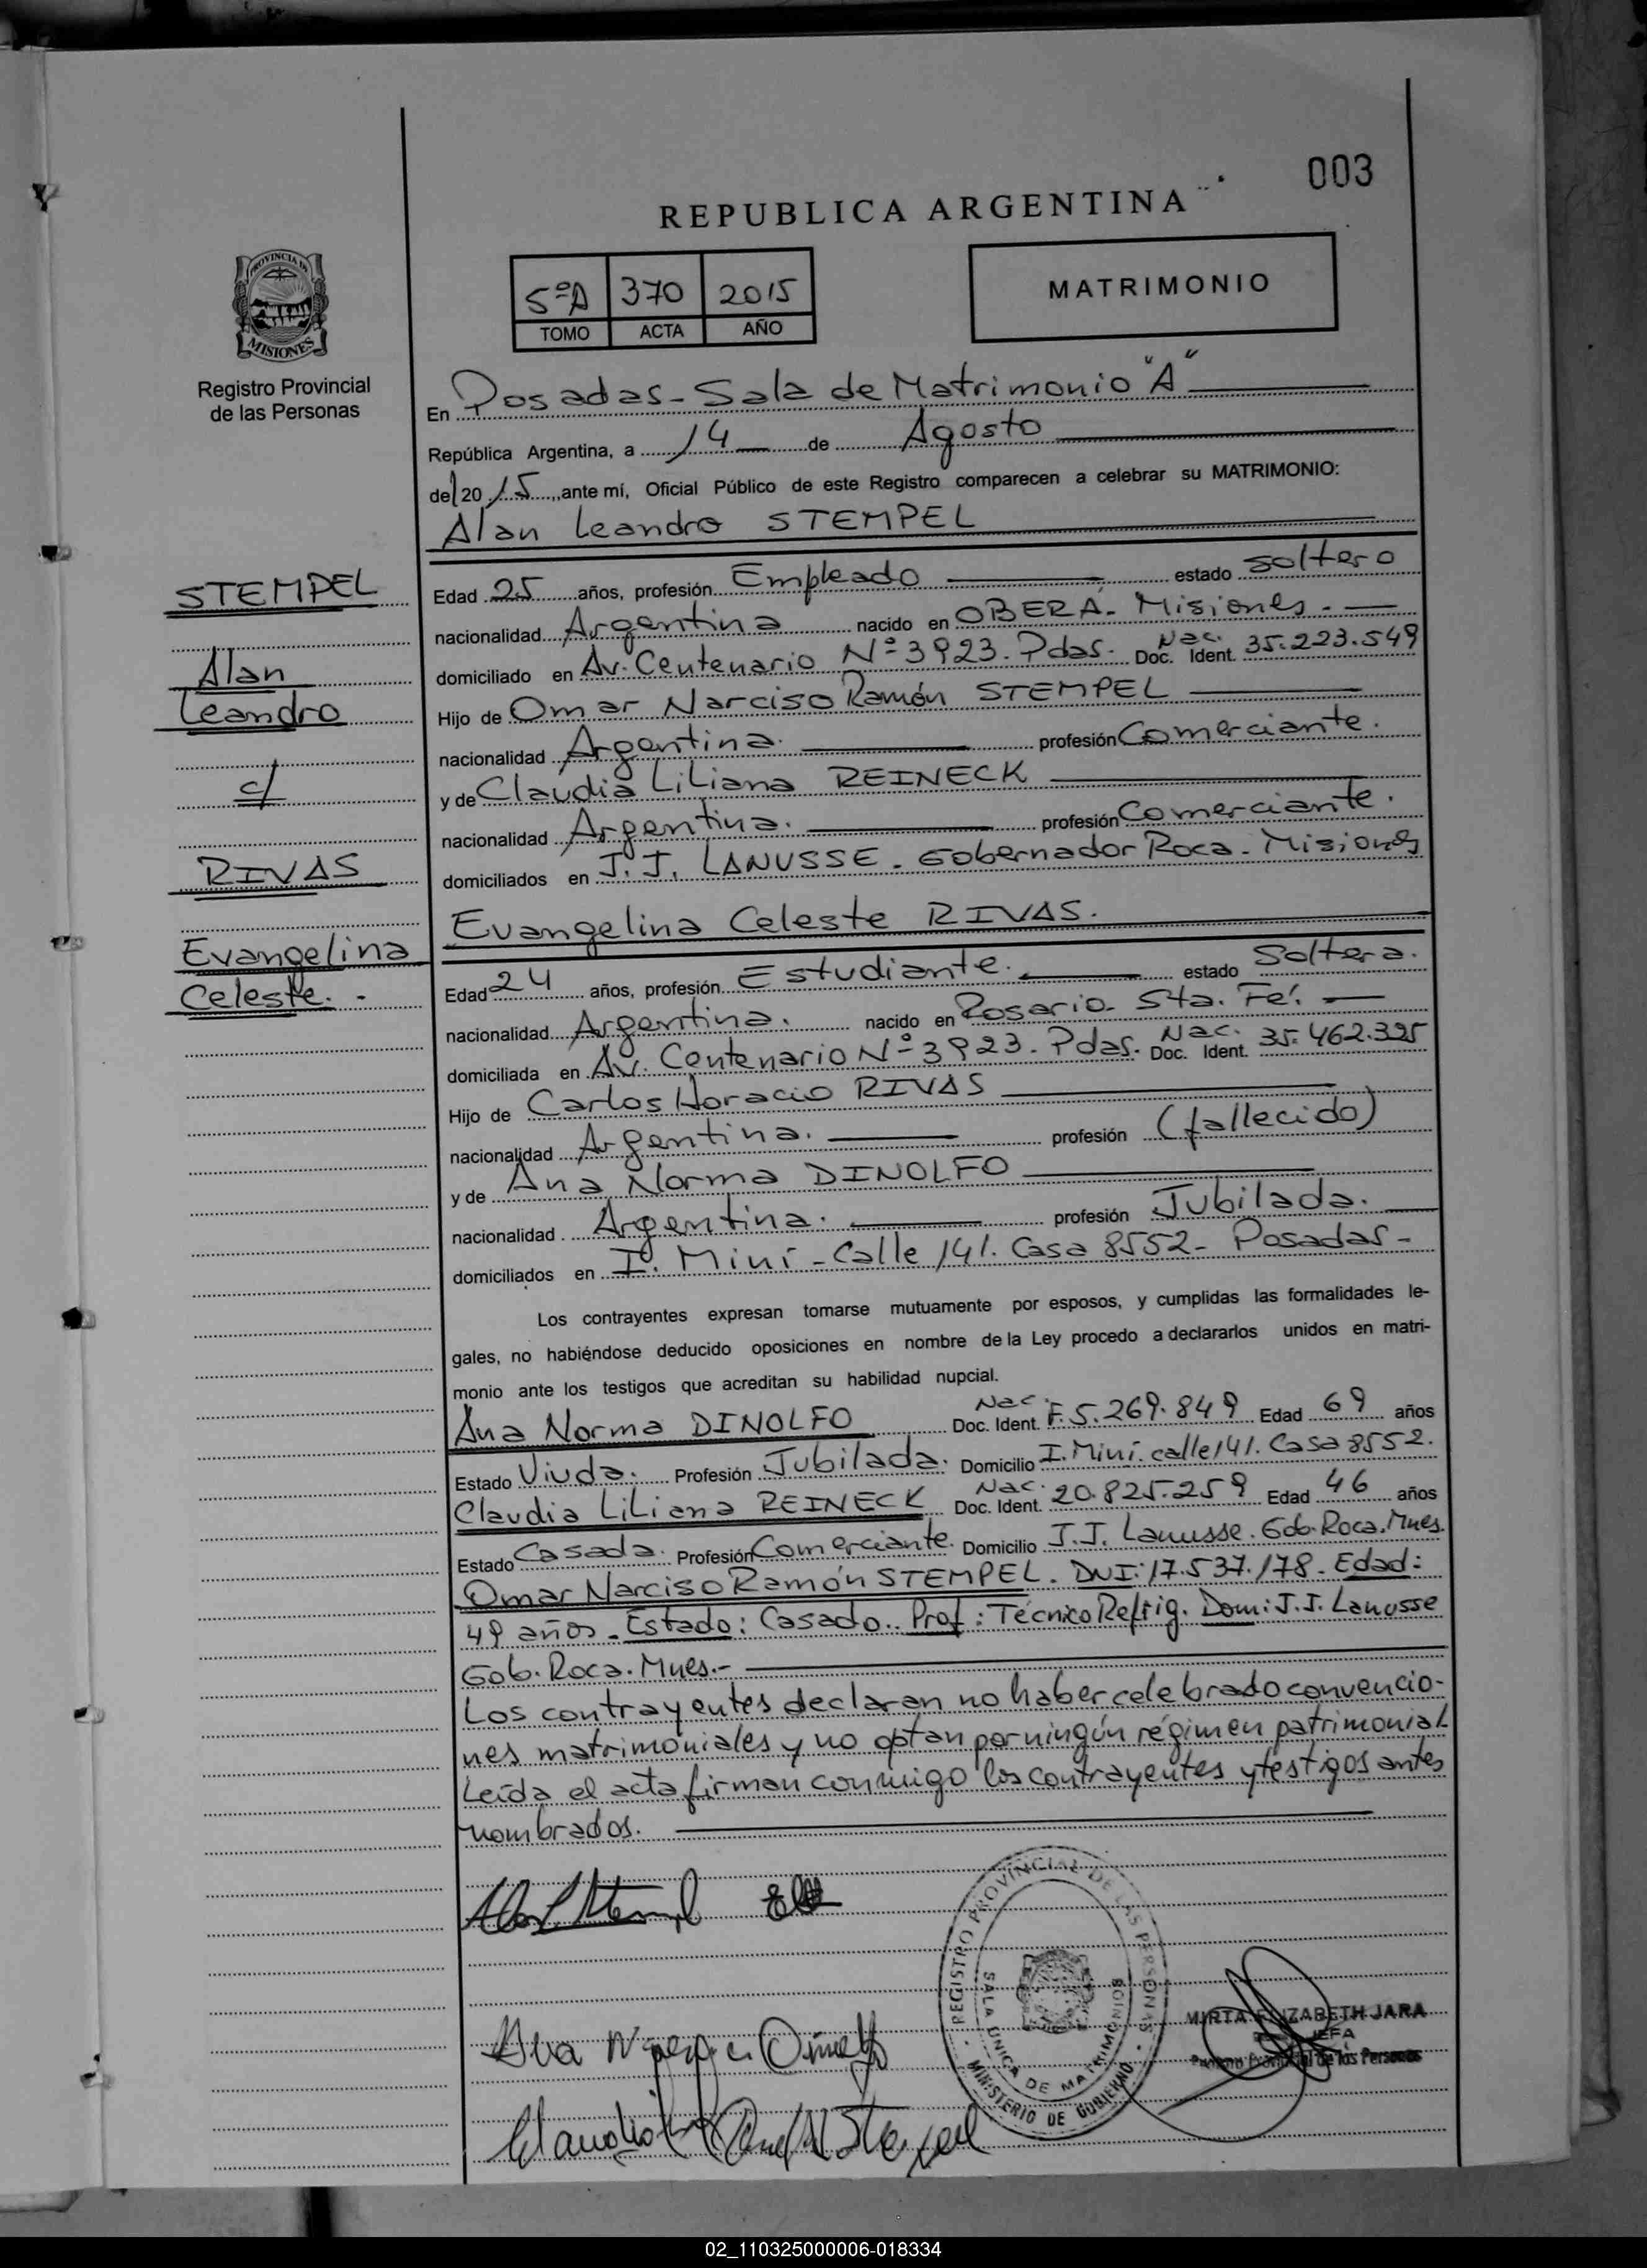 003
REPUBLICA ARGENTINA
PROVINCIA DE
MISIONES
Registro Provincial
de las Personas
5ºA 370 2015
TOMO ACTA AÑO
MATRIMONIO
En Posadas - Sala de Matrimonio "A"
República Argentina, a 14 de Agosto
del 20 15, ante mí, Oficial Público de este Registro comparecen a celebrar su MATRIMONIO:
Alan Leandro STEMPEL
STEMPEL
Alan
Leandro
c/
RIVAS
Evangelina
Celeste. -
Edad 25 años, profesión Empleado estado soltero
nacionalidad Argentina nacido en OBERÁ - Misiones -
domiciliado en Av. Centenario Nº 3923. Pdas. Doc. Nac. Ident. 35.223.549
Hijo de Omar Narciso Ramón STEMPEL
nacionalidad Argentina. profesión Comerciante.
y de Claudia Liliana REINECK
nacionalidad Argentina. profesión Comerciante.
domiciliados en J. J. LANUSSE - Gobernador Roca - Misiones
Evangelina Celeste RIVAS.
Edad 24 años, profesión Estudiante. estado Soltera.
nacionalidad Argentina. nacido en Rosario - Sta. Fé.
domiciliada en Av. Centenario Nº 3923. Pdas. Doc. Nac. Ident. 35.462.395
Hijo de Carlos Horacio RIVAS
nacionalidad Argentina. profesión (fallecido)
y de Ana Norma DINOLFO
nacionalidad Argentina. profesión Jubilada.
domiciliados en I. Miní - Calle 141. Casa 8552 - Posadas -
Los contrayentes expresan tomarse mutuamente por esposos, y cumplidas las formalidades le-
gales, no habiéndose deducido oposiciones en nombre de la Ley procedo a declararlos unidos en matri-
monio ante los testigos que acreditan su habilidad nupcial.
Ana Norma DINOLFO Doc. Nac. Ident. F. 5.269.849 Edad 69 años
Estado Viuda. Profesión Jubilada. Domicilio I. Miní. calle 141. Casa 8552.
Claudia Liliana REINECK Doc. Nac. Ident. 20.825.259 Edad 46 años
Estado Casada. Profesión Comerciante. Domicilio J. J. Lanusse. Gob. Roca. Mnes.
Omar Narciso Ramón STEMPEL. DNI: 17.537.178. Edad:
49 años. Estado: Casado. Prof: Técnico Refrig. Dom: J. J. Lanusse
Gob. Roca. Mnes. -
Los contrayentes declaran no haber celebrado convencio-
nes matrimoniales y no optan por ningún régimen patrimonial
Leída el acta firman conmigo los contrayentes y testigos antes
nombrados.
REGISTRO PROVINCIAL DE LAS PERSONAS
SALA UNICA DE MATRIMONIOS
MINISTERIO DE GOBIERNO
MIRTA ELIZABETH JARA
JEFA
Provincial de las Personas
02_110325000006-018334